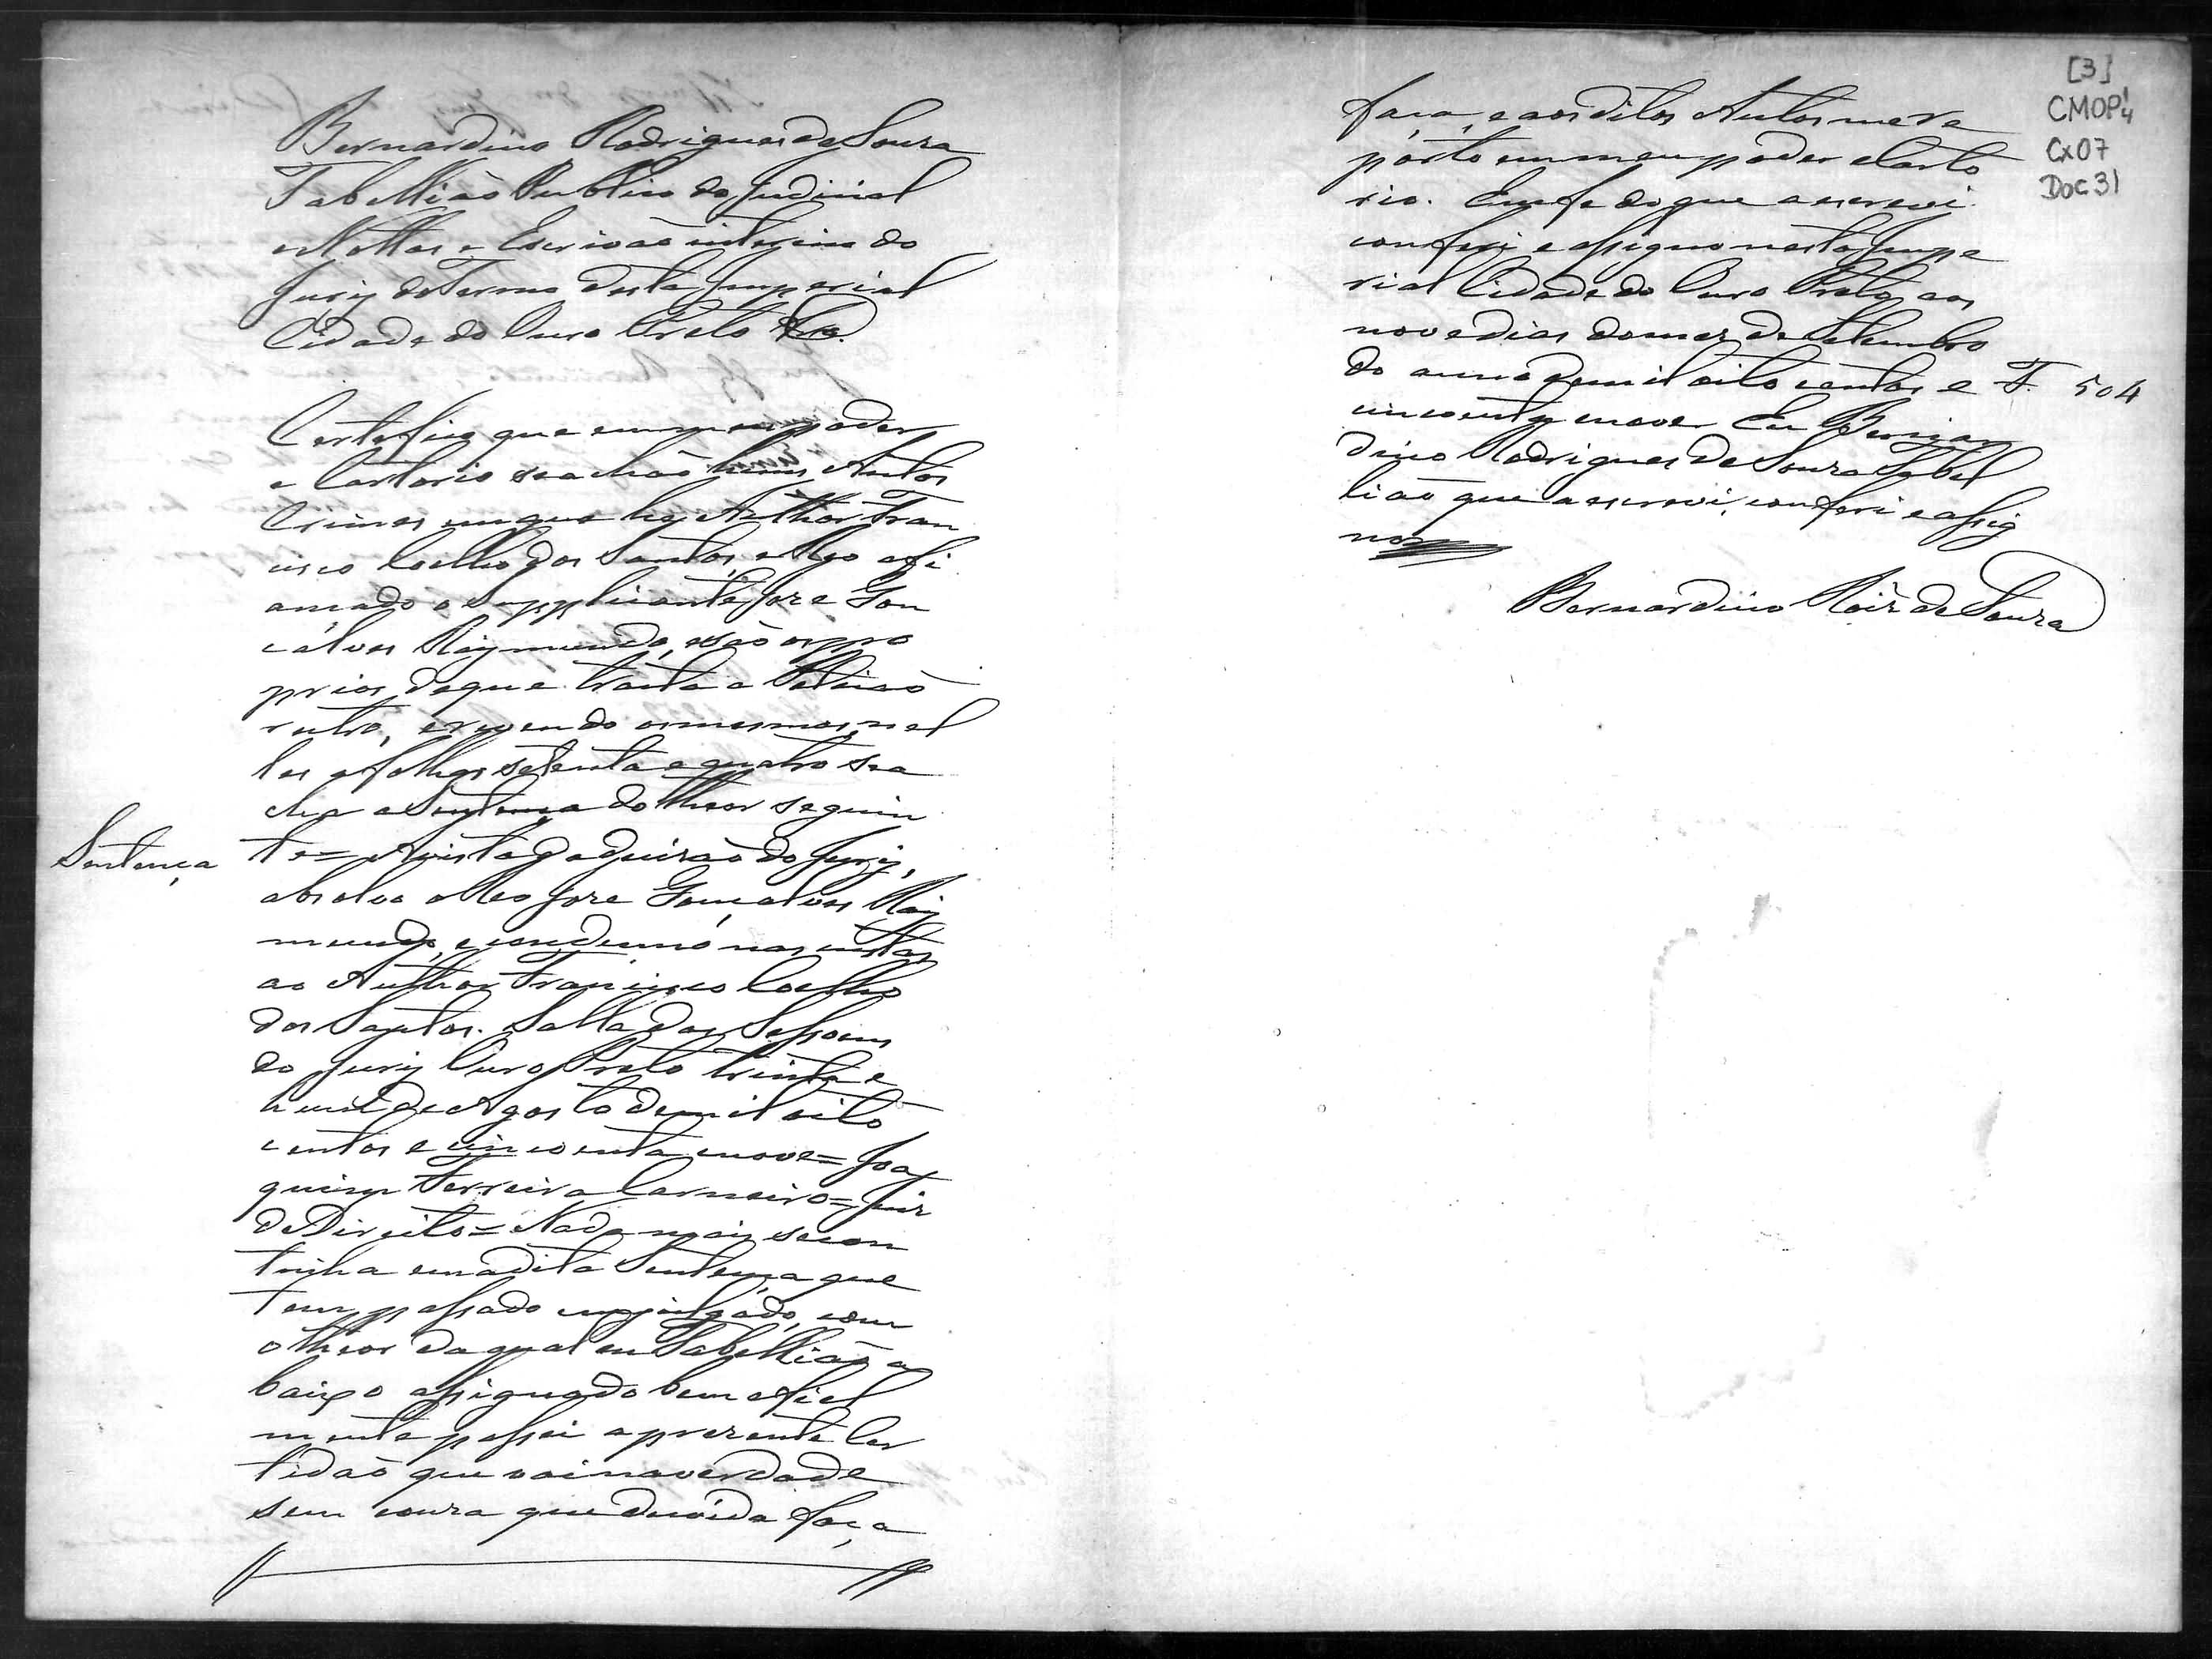 Bernardino Rodrigues de Souza
Tabellião Publico do Judicial
e Nottas e Escrivão interino do
Jury do Termo desta Imperial
Cidade do Ouro Preto &a.
Certefico que em meu poder
e Cartorio se achão huns Autos
Crimes em que he Author Fran
cisco Coelho dos Santos, e Reo afi
ançado o Supplicante Joze Gon
çalves Raymundo, e são os pro
prios de que trata a Petição
retro, e revendo os mesmos, nel
les a folhas setenta e quatro se a
cha a Sentença do theor seguin
Sentença
te = A vista da decizão do Jury,
absolvo o Reo Joze Gonçalves Ray
mundo, e condemno nas custas
ao Author Francisco Coelho
dos Santos. Salla das Sessoens
do Jury Ouro Preto trinta e
hum de Agosto de mil oito
centos e cincoenta e nove = Joa
quim Ferreira Carneiro = Juiz
de Direito = Nada mais se con
tinha em a dita Sentença que
tem passado em julgado, com
o theor da qual eu Tabellião a
baixo assignado bem e fiel
mente passei a prezente Cer
tidão que vai na verdade
sem couza que duvida faça
faça, e aos ditos Autos me re
porto em meu poder e Carto
rio. Em fé do que a escrevi
conferi e assigno nesta Impe
rial Cidade do Ouro Preto, aos
nove dias do mez de Setembro
do anno de mil oito centos e
F. 504
cincoenta e nove. Eu Bernar
dino Rodrigues de Souza Tabel
lião que a escrevi, conferi e assig
no
Bernardino Roiz de Souza
[3]
CMOP
Cx07
Doc 31